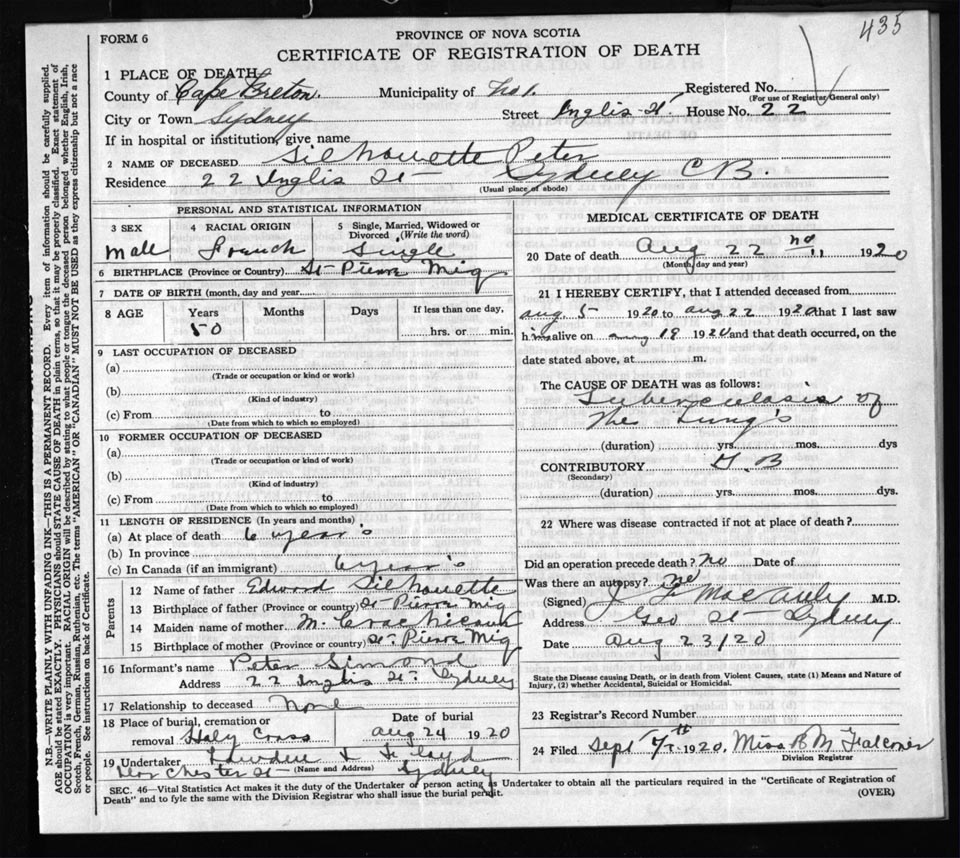 435
FORM 6
PROVINCE OF NOVA SCOTIA
CERTIFICATE OF REGISTRATION OF DEATH
1 PLACE OF DEATH
County of Cape Breton. Municipality of No 1. Registered No.
(For use of Registrar General only)
City or Town Sydney Street Inglis St House No. 22
If in hospital or institution, give name
2 NAME OF DECEASED Silhouette Peter
Residence 22 Inglis St Sydney C B.
(Usual place of abode)
PERSONAL AND STATISTICAL INFORMATION
3 SEX 4 RACIAL ORIGIN 5 Single, Married, Widowed or Divorced (Write the word)
Male French Single
6 BIRTHPLACE (Province or Country) St Pierre Miq
7 DATE OF BIRTH (month, day and year)
8 AGE Years Months Days If less than one day,
50 hrs. or min.
9 LAST OCCUPATION OF DECEASED
(a)
(Trade or occupation or kind or work)
(b)
(Kind of industry)
(c) From to
(Date from which to which so employed)
10 FORMER OCCUPATION OF DECEASED
(a)
(Trade or occupation or kind of work)
(b)
(Kind of industry)
(c) From to
(Date from which to which so employed)
11 LENGTH OF RESIDENCE (In years and months)
(a) At place of death 6 year's
(b) In province
(c) In Canada (if an immigrant) 6 year's
Parents
12 Name of father Edward Silhouette
13 Birthplace of father (Province or country) St Pierre Miq
14 Maiden name of mother M.
15 Birthplace of mother (Province or country) St Pierre Miq
16 Informant's name Peter Simond
Address 22 Inglis St Sydney
17 Relationship to deceased None
18 Place of burial, cremation or removal Holy Cross
Date of burial Aug 24 1920
19 Undertaker
(Name and Address)
Dorchester St Sydney
MEDICAL CERTIFICATE OF DEATH
20 Date of death Aug 22 nd 1920
(Month, day and year)
21 I HEREBY CERTIFY, that I attended deceased from
Aug 5 1920 to Aug 22 1920 that I last saw
him alive on Aug 18 1920 and that death occurred, on the
date stated above, at m.
The CAUSE OF DEATH was as follows:
Tuberculosis of
The Lung's
(duration) yrs. mos. dys
CONTRIBUTORY
(Secondary)
(duration) yrs. mos. dys.
22 Where was disease contracted if not at place of death?
Did an operation precede death? No Date of
Was there an autopsy? no
(Signed) M.D.
Address Geo St Sydney
Date Aug 23/20
State the Disease causing Death, or in death from Violent Causes, state (1) Means and Nature of
Injury, (2) whether Accidental, Suicidal or Homicidal.
23 Registrar's Record Number
24 Filed Sept 7th 1920. Miss B M Falconer
Division Registrar
SEC. 46—Vital Statistics Act makes it the duty of the Undertaker or person acting as Undertaker to obtain all the particulars required in the "Certificate of Registration of
Death" and to fyle the same with the Division Registrar who shall issue the burial permit.
(OVER)
N.B.—WRITE PLAINLY WITH UNFADING INK—THIS IS A PERMANENT RECORD. Every item of information should be carefully supplied.
AGE should be stated EXACTLY. PHYSICIANS should STATE CAUSE OF DEATH in plain terms, so that it may be properly classified. Exact statement of
OCCUPATION is very important. RACIAL ORIGIN will be described by stating to what people or tongue the deceased person belonged whether English, Irish,
Scotch, French, German, Russian, Ruthenian, etc. The terms "AMERICAN" OR "CANADIAN" MUST NOT BE USED as they express citizenship but not a race
or people. See instructions on back of Certificate.